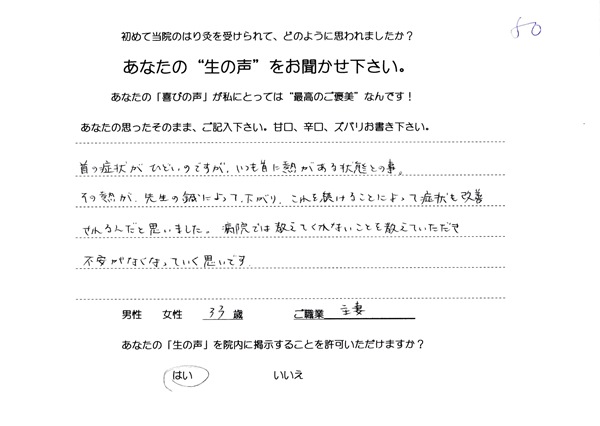 50
初めて当院のはり灸を受けられて、どのように思われましたか？
あなたの“生の声”をお聞かせ下さい。
あなたの「喜びの声」が私にとっては“最高のご褒美”なんです！
あなたの思ったそのまま、ご記入下さい。甘口、辛口、ズバリお書き下さい。
首の症状がひどいのですが、いつも首に熱がある状態との事。
その熱が、先生の鍼によって下がり、これを続けることによって症状も改善
されるんだと思いました。病院では教えてくれないことを教えていただき
不安がなくなっていく思いです
男性 女性 33歳 ご職業 主妻
あなたの「生の声」を院内に掲示することを許可いただけますか？
はい いいえ